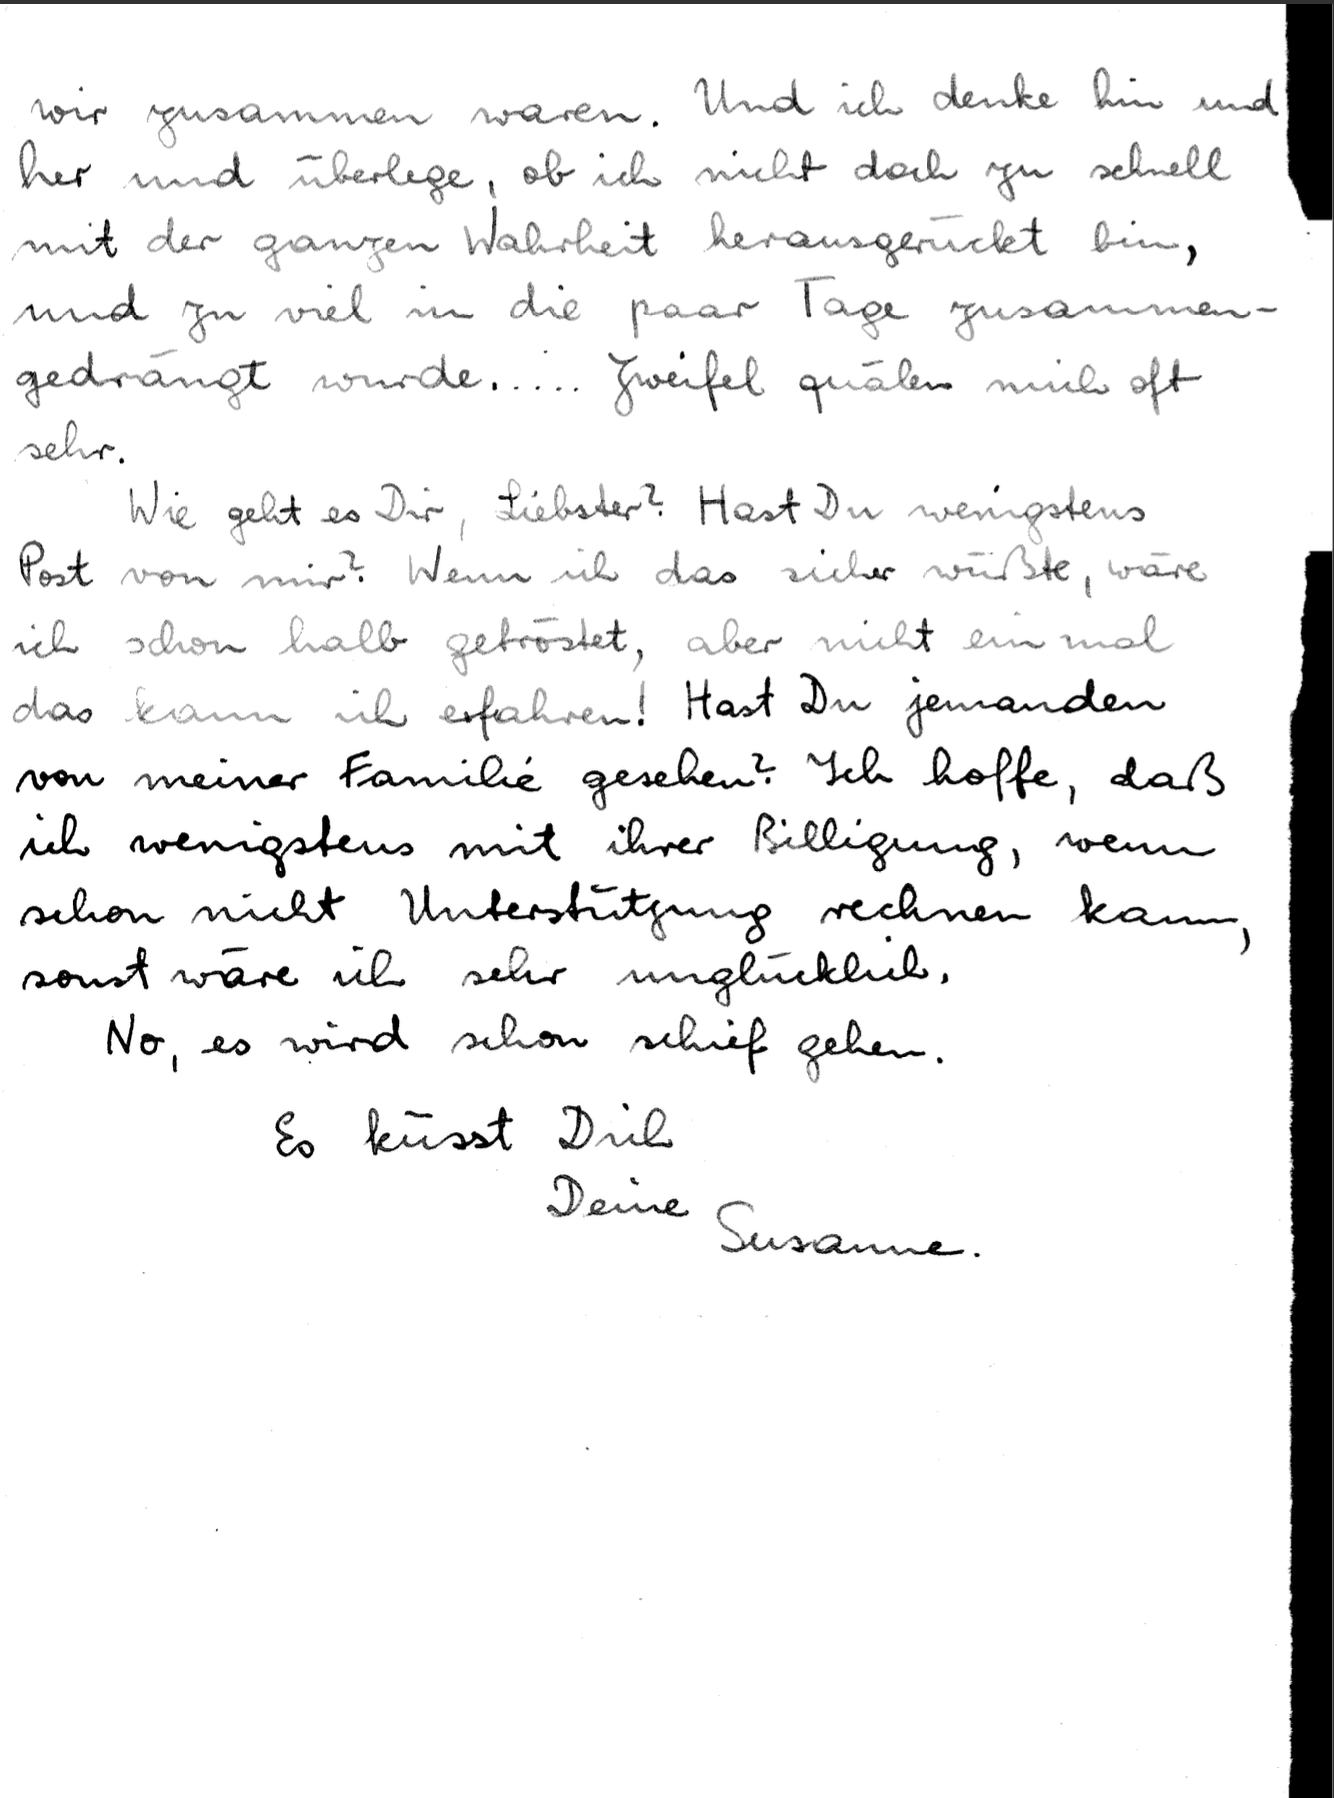 wir zusammen waren. Und ich denke hin und
her und überlege, ob ich nicht doch zu schnell
mit der ganzen Wahrheit herausgerückt bin,
und zu viel in die paar Tage zusammen-
gedrängt wurde..... Zweifel quälen mich oft
sehr.
Wie geht es Dir, Liebster? Hast Du wenigstens
Post von mir? Wenn ich das sicher wüßte, wäre
ich schon halb getröstet, aber nicht einmal
das kann ich erfahren! Hast Du jemanden
von meiner Familie gesehen? Ich hoffe, daß
ich wenigstens mit ihrer Billigung, wenn
schon nicht Unterstützung rechnen kann,
sonst wäre ich sehr unglücklich.
No, es wird schon schief gehen.
Es küsst Dich
Deine
Susanne.